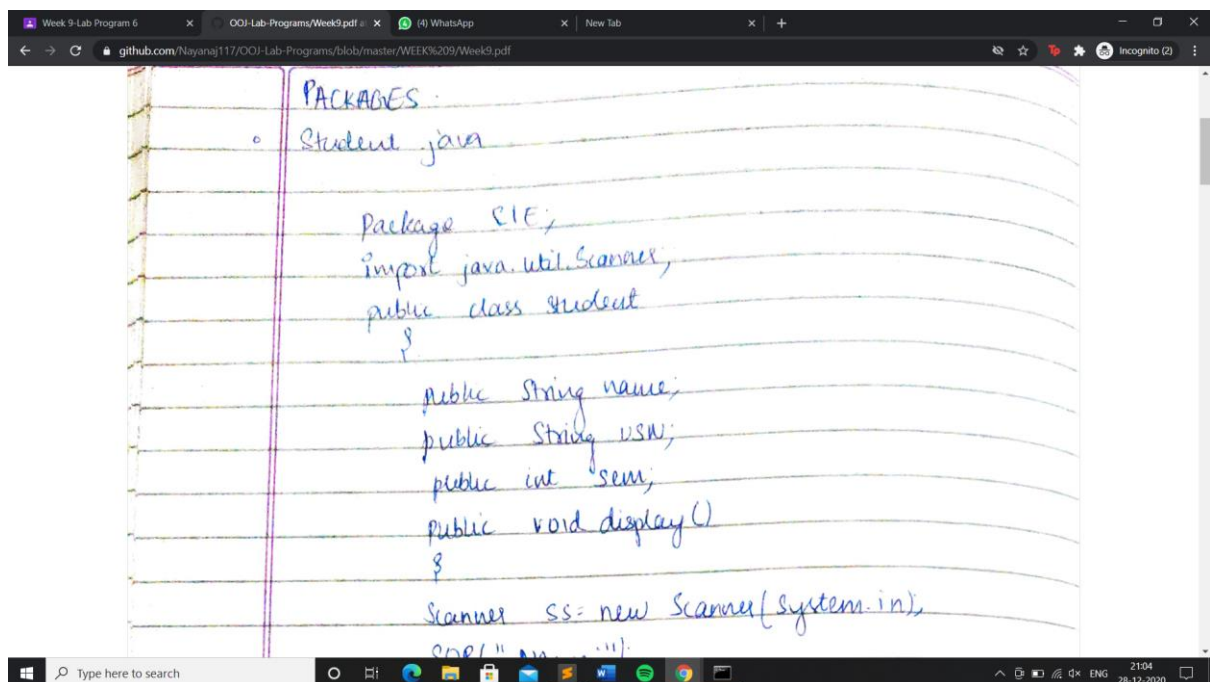 Week 9-Lab Program 6
OOJ-Lab-Programs/Week9.pdf a
(4) WhatsApp
New Tab
github.com/Nayanaj117/OOJ-Lab-Programs/blob/master/WEEK%209/Week9.pdf
Incognito (2)
PACKAGES.
Student java
Package CIE;
import java.util.Scanner;
public class student
{
public String name;
public String USN;
public int sem;
public void display()
{
Scanner ss= new Scanner(system.in);
SOP("
Type here to search
ENG
21:04
28-12-2020